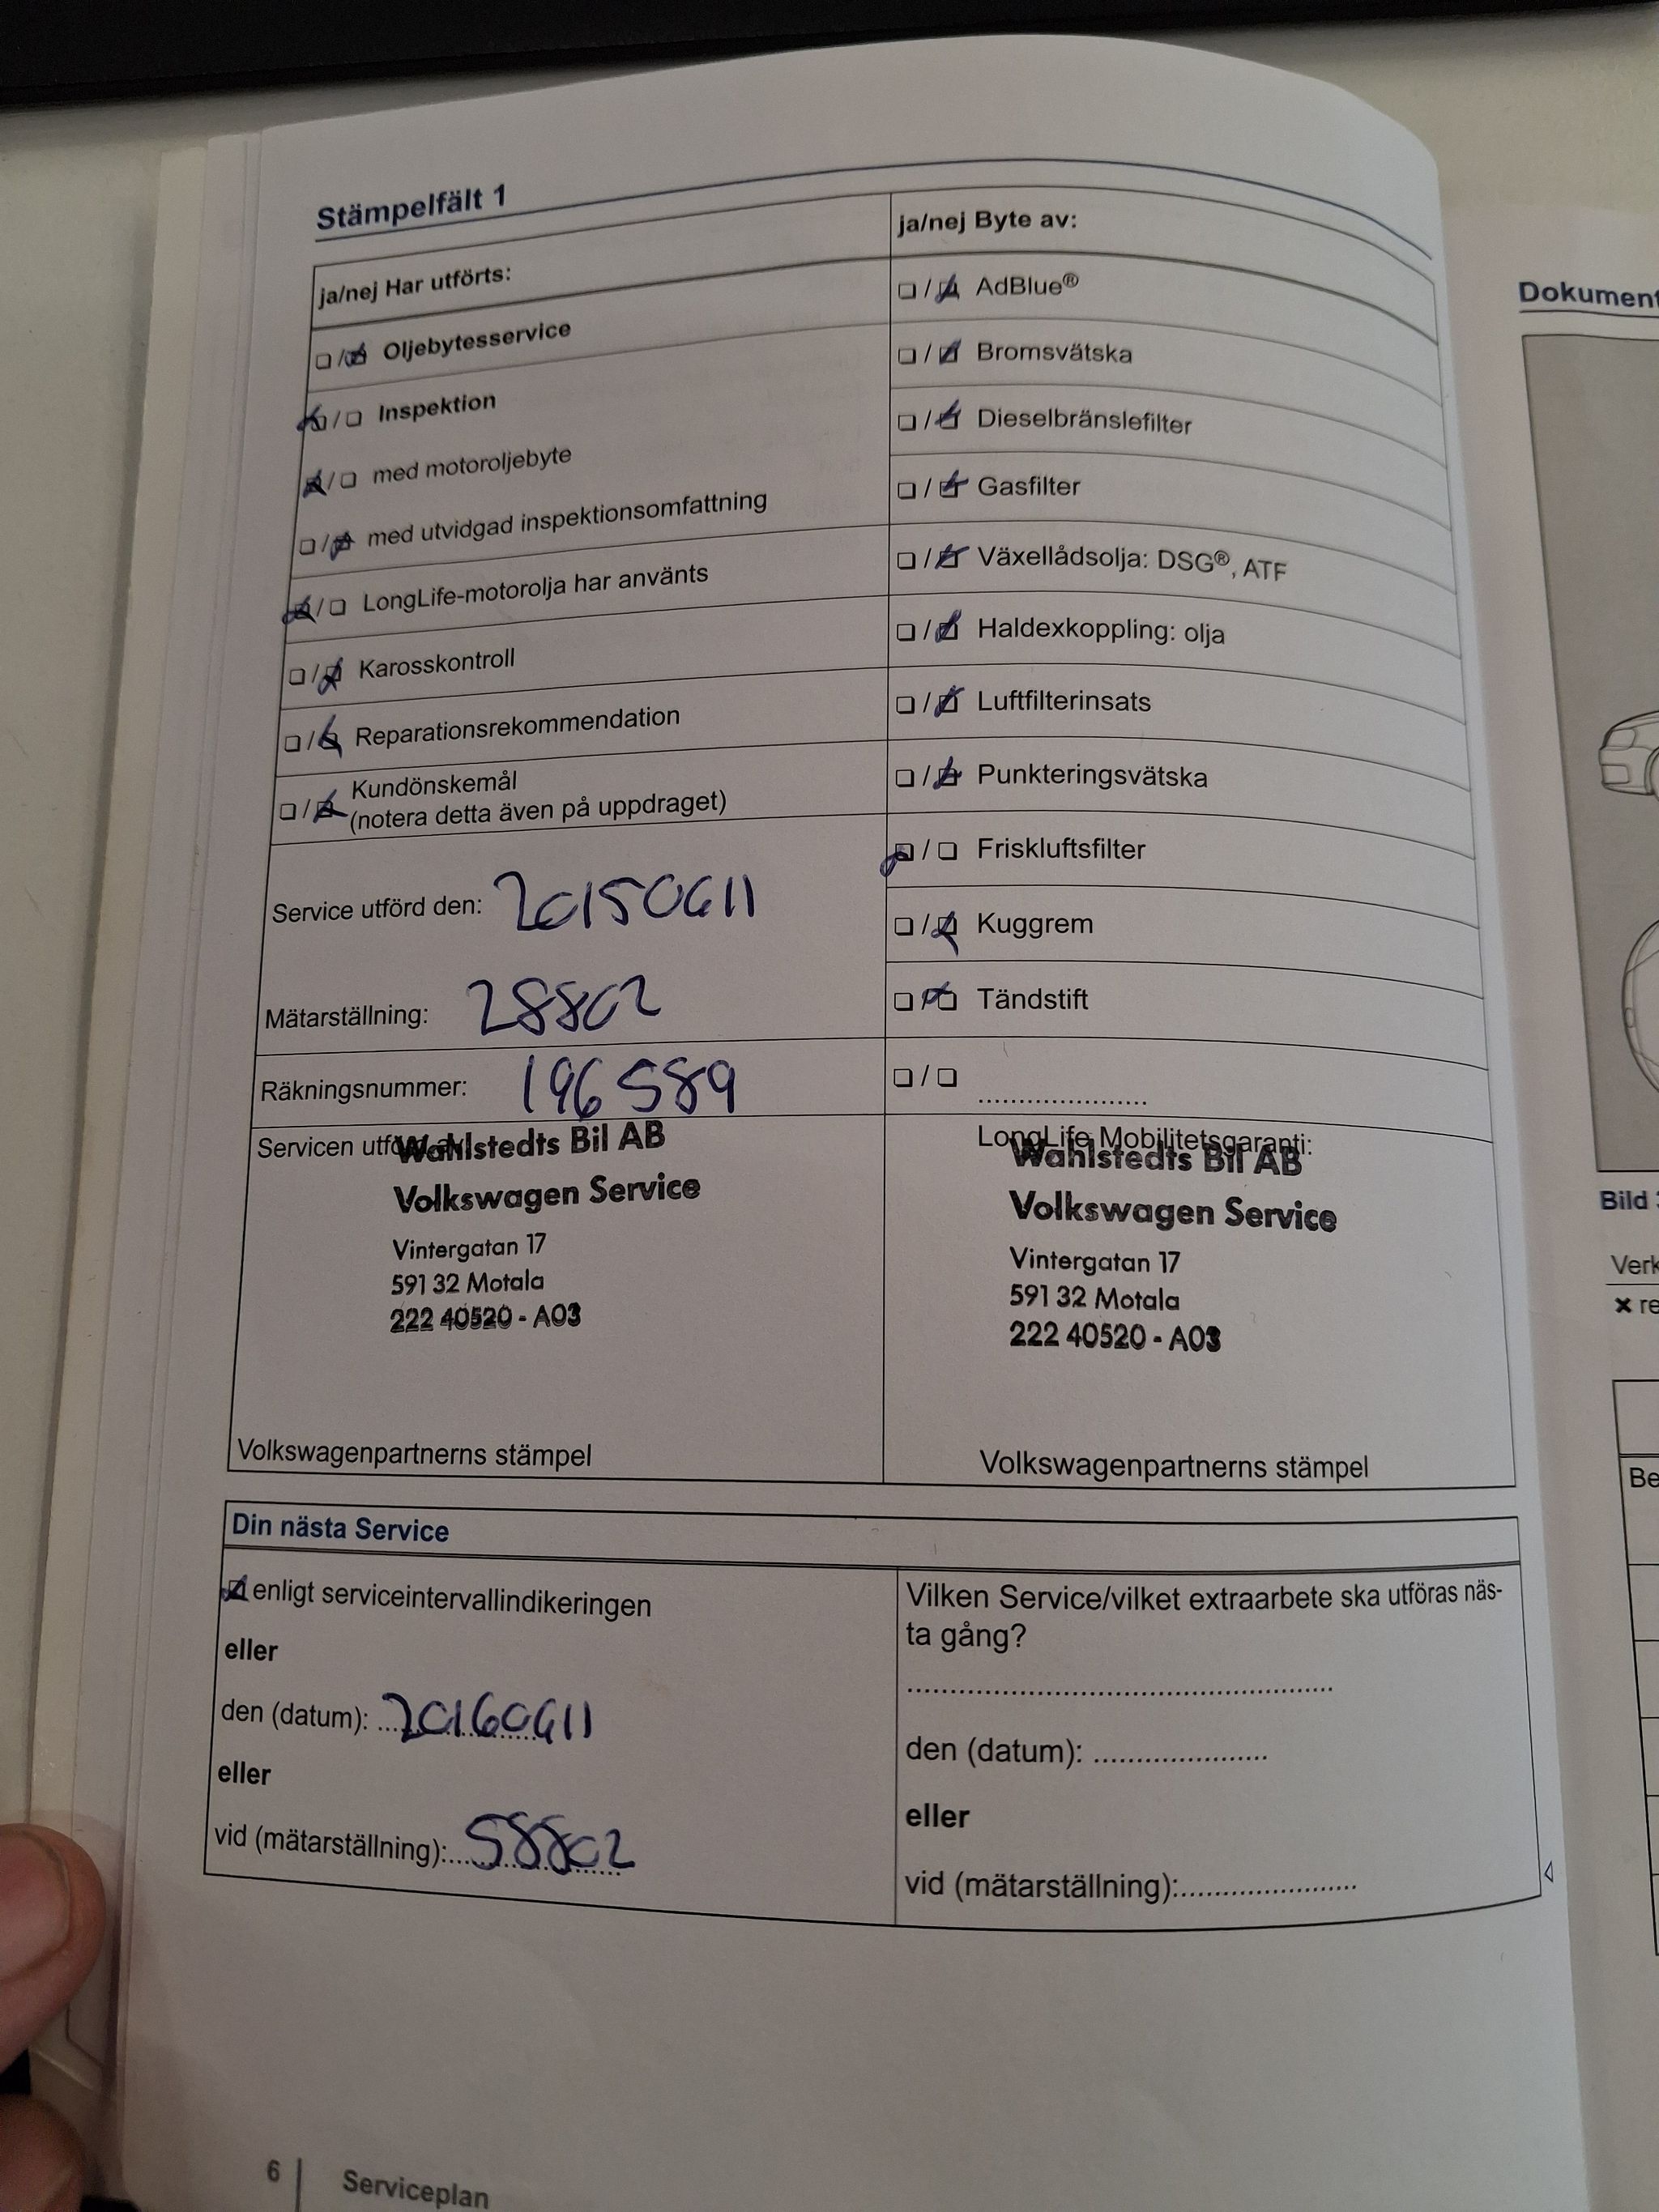 Stämpelfält 1
ja/nej Har utförts:
❏ / ❏ Oljebytesservice
❏ / ❏ Inspektion
❏ / ❏ med motoroljebyte
❏ / ❏ med utvidgad inspektionsomfattning
❏ / ❏ LongLife-motorolja har använts
❏ / ❏ Karosskontroll
❏ / ❏ Reparationsrekommendation
❏ / ❏ Kundönskemål
(notera detta även på uppdraget)
Service utförd den: 20150611
Mätarställning: 28802
Räkningsnummer: 196589
Servicen utförd av:
Wahlstedts Bil AB
Volkswagen Service
Vintergatan 17
591 32 Motala
222 40520 - A03
Volkswagenpartnerns stämpel
ja/nej Byte av:
❏ / ❏ AdBlue®
❏ / ❏ Bromsvätska
❏ / ❏ Dieselbränslefilter
❏ / ❏ Gasfilter
❏ / ❏ Växellådsolja: DSG®, ATF
❏ / ❏ Haldexkoppling: olja
❏ / ❏ Luftfilterinsats
❏ / ❏ Punkteringsvätska
❏ / ❏ Friskluftsfilter
❏ / ❏ Kuggrem
❏ / ❏ Tändstift
❏ / ❏ .....................
LongLife Mobilitetsgaranti:
Wahlstedts Bil AB
Volkswagen Service
Vintergatan 17
591 32 Motala
222 40520 - A03
Volkswagenpartnerns stämpel
Din nästa Service
❏ enligt serviceintervallindikeringen
eller
den (datum): 20160611
eller
vid (mätarställning): 58802
Vilken Service/vilket extraarbete ska utföras näs-
ta gång?
.....................................................
den (datum): .....................
eller
vid (mätarställning):.....................
6 | Serviceplan
Dokument
Bild
Verk
× re
Be